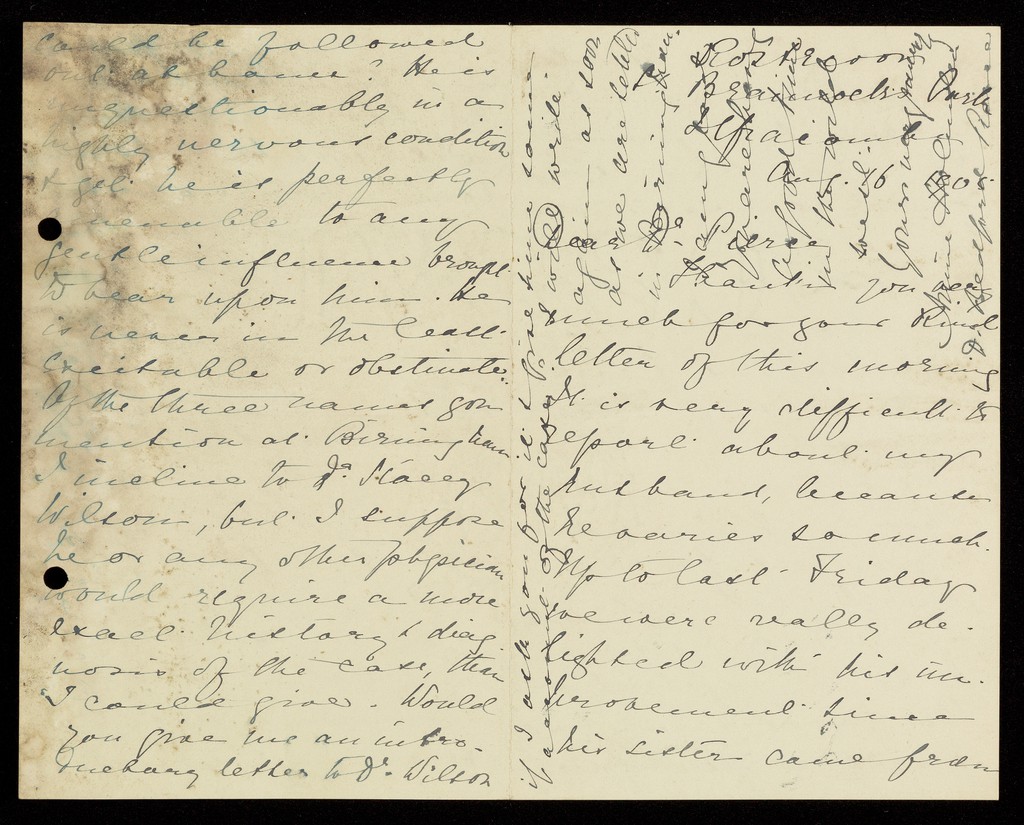 could be followed
out at home? He is
unquestionably in a
highly nervous condition
& yet he is perfectly
amenable to any
gentle influence brought
to bear upon him. He
is never in the least
excitable or obstinate.
Of the three names you
mention at Birmingham
I incline to Dr. Stacey
Wilson, but I suppose
he or any other physician
would require a more
exact history & diag
nosis of the case, than
I could give. Would
you give me an intro-
ductory letter to Dr. Wilson
if I ask you for it & give him some
account of the case? I will write
again as soon
as we are settled
in Birmingham.
I am
in the
well.
Yours very
Bedford Pierce
Braunocks Park
Ilfracombe
Aug. 16
Dear Dr. Pierce
Thank you very
much for your kind
letter of this morning
It is very difficult to
report about my
husband, because
he varies so much.
Up to last Friday
we were really de-
lighted with his im-
provement since
his sister came from